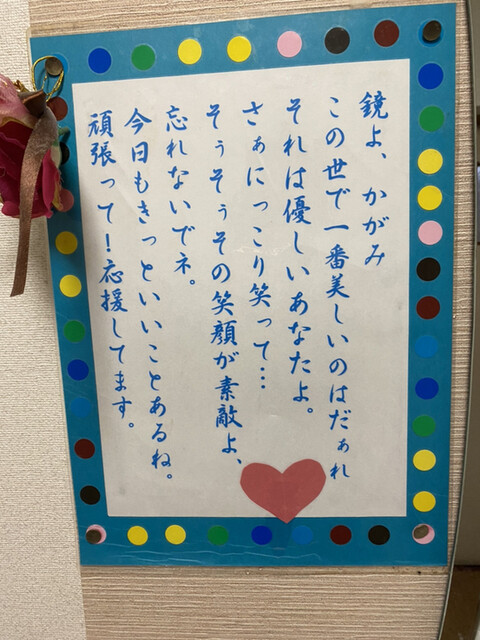 鏡よ、かがみ
この世で一番美しいのはだぁれ
それは優しいあなたよ。
さぁにっこり笑って…
そぅそぅその笑顔が素敵よ、
忘れないでネ。
今日もきっといいことあるね。
頑張って！応援してます。